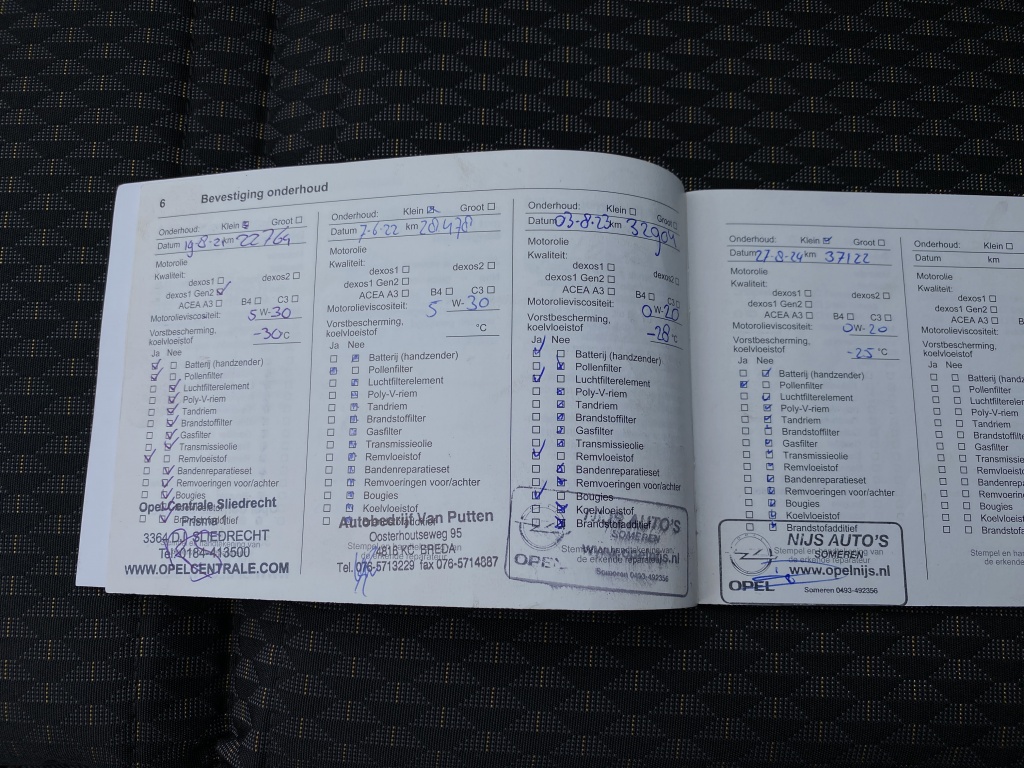 6 Bevestiging onderhoud
Onderhoud: Klein Groot
Datum 19-8-21 km 22764
Motorolie
Kwaliteit:
dexos1 dexos2
dexos1 Gen2
ACEA A3 B4 C3
Motorolieviscositeit: 5 W-30
Vorstbescherming,
koelvloeistof -30°C
Ja Nee
Batterij (handzender)
Pollenfilter
Luchtfilterelement
Poly-V-riem
Tandriem
Brandstoffilter
Gasfilter
Transmissieolie
Remvloeistof
Bandenreparatieset
Remvoeringen voor/achter
Bougies
Opel Centrale Sliedrecht
Prisma 1
3364 DJ SLIEDRECHT
Tel 0184-413500
WWW.OPELCENTRALE.COM
Onderhoud: Klein Groot
Datum 7-6-22 km 28478
Motorolie
Kwaliteit:
dexos1 dexos2
dexos1 Gen2
ACEA A3 B4 C3
Motorolieviscositeit: 5 W-30
Vorstbescherming,
koelvloeistof °C
Ja Nee
Batterij (handzender)
Pollenfilter
Luchtfilterelement
Poly-V-riem
Tandriem
Brandstoffilter
Gasfilter
Transmissieolie
Remvloeistof
Bandenreparatieset
Remvoeringen voor/achter
Bougies
Koelvloeistof
Autobedrijf Van Putten
Oosterhoutseweg 95
4816 KC BREDA
Tel. 076-5713229 fax 076-5714887
Onderhoud: Klein Groot
Datum 03-8-23 km 32904
Motorolie
Kwaliteit:
dexos1 dexos2
dexos1 Gen2
ACEA A3 B4 C3
Motorolieviscositeit: 0 W-20
Vorstbescherming,
koelvloeistof -28 °C
Ja Nee
Batterij (handzender)
Pollenfilter
Luchtfilterelement
Poly-V-riem
Tandriem
Brandstoffilter
Gasfilter
Transmissieolie
Remvloeistof
Bandenreparatieset
Remvoeringen voor/achter
Bougies
Koelvloeistof
Brandstofadditief
NIJS AUTO'S
SOMEREN
Stempel en handtekening van
de erkende reparateur
www.opelnijs.nl
OPEL
Someren 0493-492356
Onderhoud: Klein Groot
Datum 27-8-24 km 37122
Motorolie
Kwaliteit:
dexos1 dexos2
dexos1 Gen2
ACEA A3 B4 C3
Motorolieviscositeit: 0W-20
Vorstbescherming,
koelvloeistof -25 °C
Ja Nee
Batterij (handzender)
Pollenfilter
Luchtfilterelement
Poly-V-riem
Tandriem
Brandstoffilter
Gasfilter
Transmissieolie
Remvloeistof
Bandenreparatieset
Remvoeringen voor/achter
Bougies
Koelvloeistof
Brandstofadditief
NIJS AUTO'S
SOMEREN
Stempel en handtekening van
de erkende reparateur
www.opelnijs.nl
OPEL
Someren 0493-492356
Onderhoud: Klein
Datum km
Motorolie
Kwaliteit:
dexos1
dexos1 Gen2
ACEA A3
Motorolieviscositeit:
Vorstbescherming,
koelvloeistof
Ja Nee
Batterij (hand
Pollenfilter
Luchtfilterele
Poly-V-riem
Tandriem
Brandstoffilt
Gasfilter
Transmissi
Remvloeist
Bandenrep
Remvoerin
Bougies
Koelvloeis
Brandstofa
Stempel en hand
de erkende